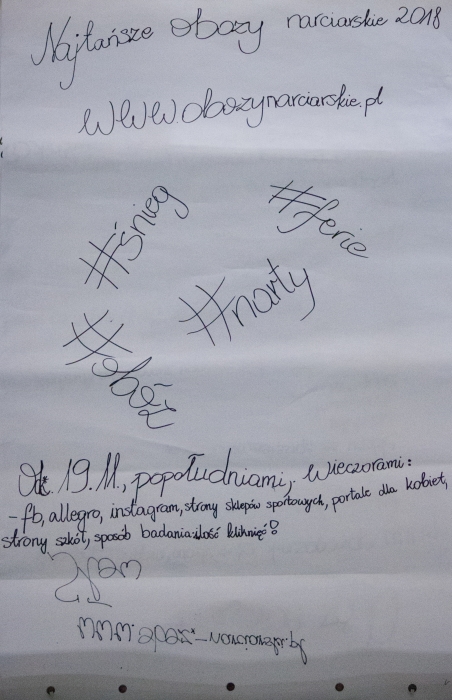 Najtańsze obozy narciarskie 2018
www.obozynarciarskie.pl
#śnieg
#ferie
#narty
#obóz
Ok. 19.11., popołudniami, wieczorami:
- fb, allegro, instagram, strony sklepów sportowych, portale dla kobiet,
strony szkół, sposób badania: ilość kliknięć!